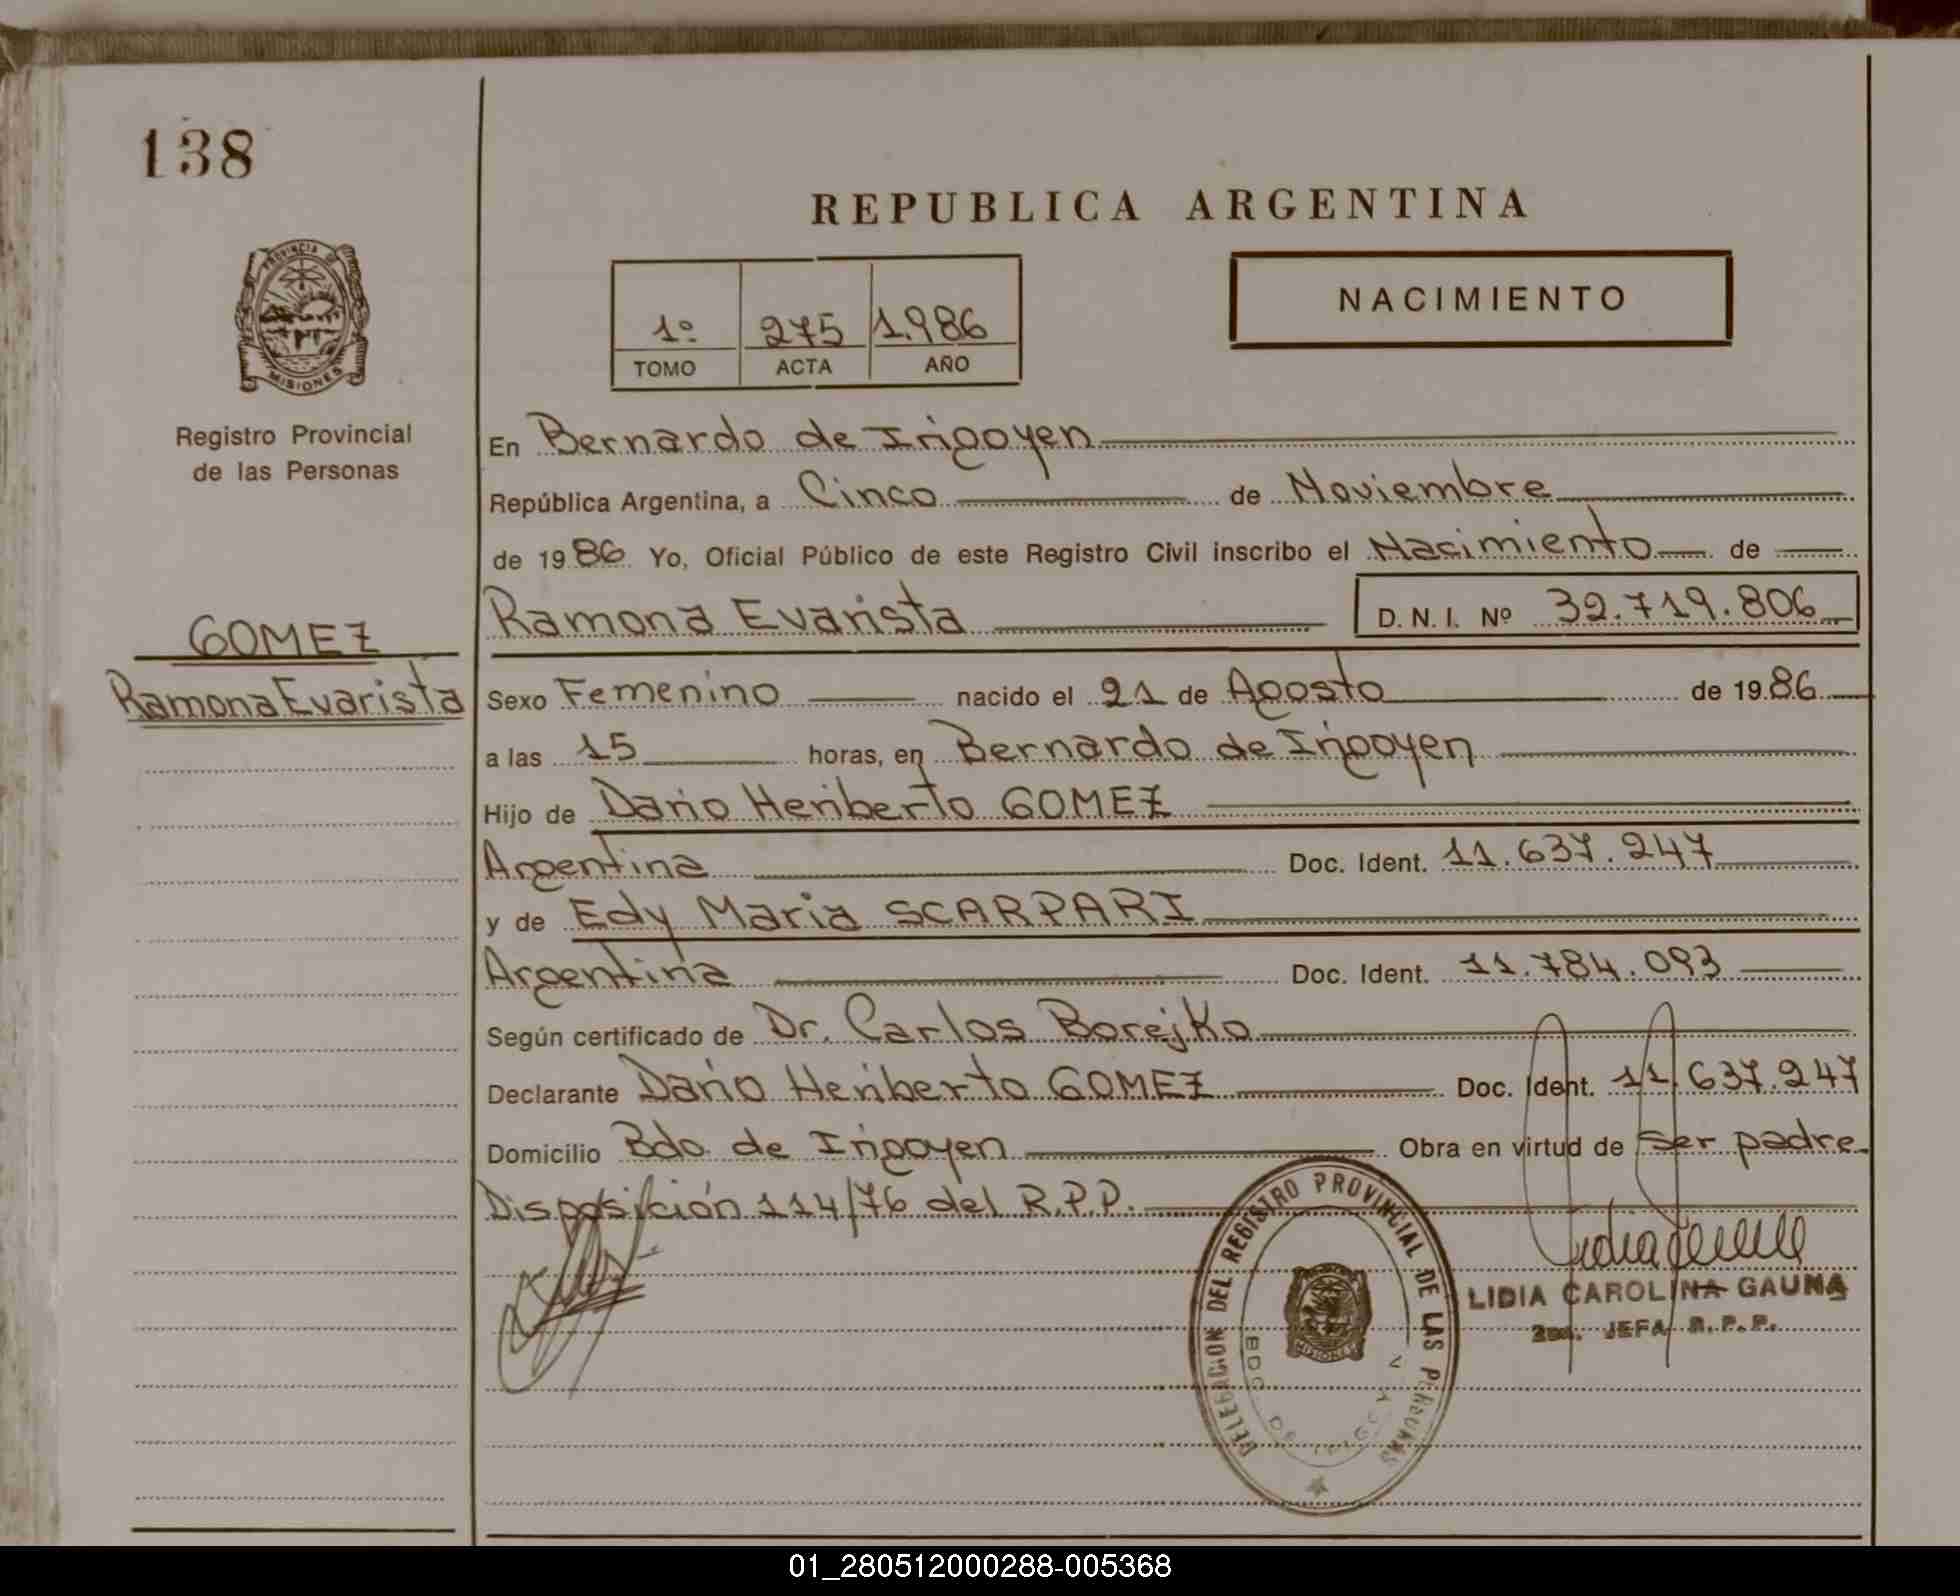 138
REPUBLICA ARGENTINA
PROVINCIA DE
MISIONES
Registro Provincial
de las Personas
1º 275 1.986
TOMO ACTA AÑO
NACIMIENTO
En Bernardo de Irigoyen
República Argentina, a Cinco de Noviembre
de 1986 Yo, Oficial Público de este Registro Civil inscribo el Nacimiento de
Ramona Evarista D.N.I. Nº 32.719.806
GOMEZ
Ramona Evarista
Sexo Femenino nacido el 21 de Agosto de 1986
a las 15 horas, en Bernardo de Irigoyen
Hijo de Dario Heriberto GOMEZ
Argentina Doc. Ident. 11.637.247
y de Edy Maria SCARPARI
Argentina Doc. Ident. 11.784.093
Según certificado de Dr. Carlos Borejko
Declarante Dario Heriberto GOMEZ Doc. Ident. 11.637.247
Domicilio Bdo. de Irigoyen Obra en virtud de ser padre
Disposición 114/76 del R.P.P.
DELEGACION DEL REGISTRO PROVINCIAL DE LAS PERSONAS
BDO DE IRIGOYEN
MISIONES
LIDIA CAROLINA GAUNA
2da. JEFA R.P.P.
01_280512000288-005368